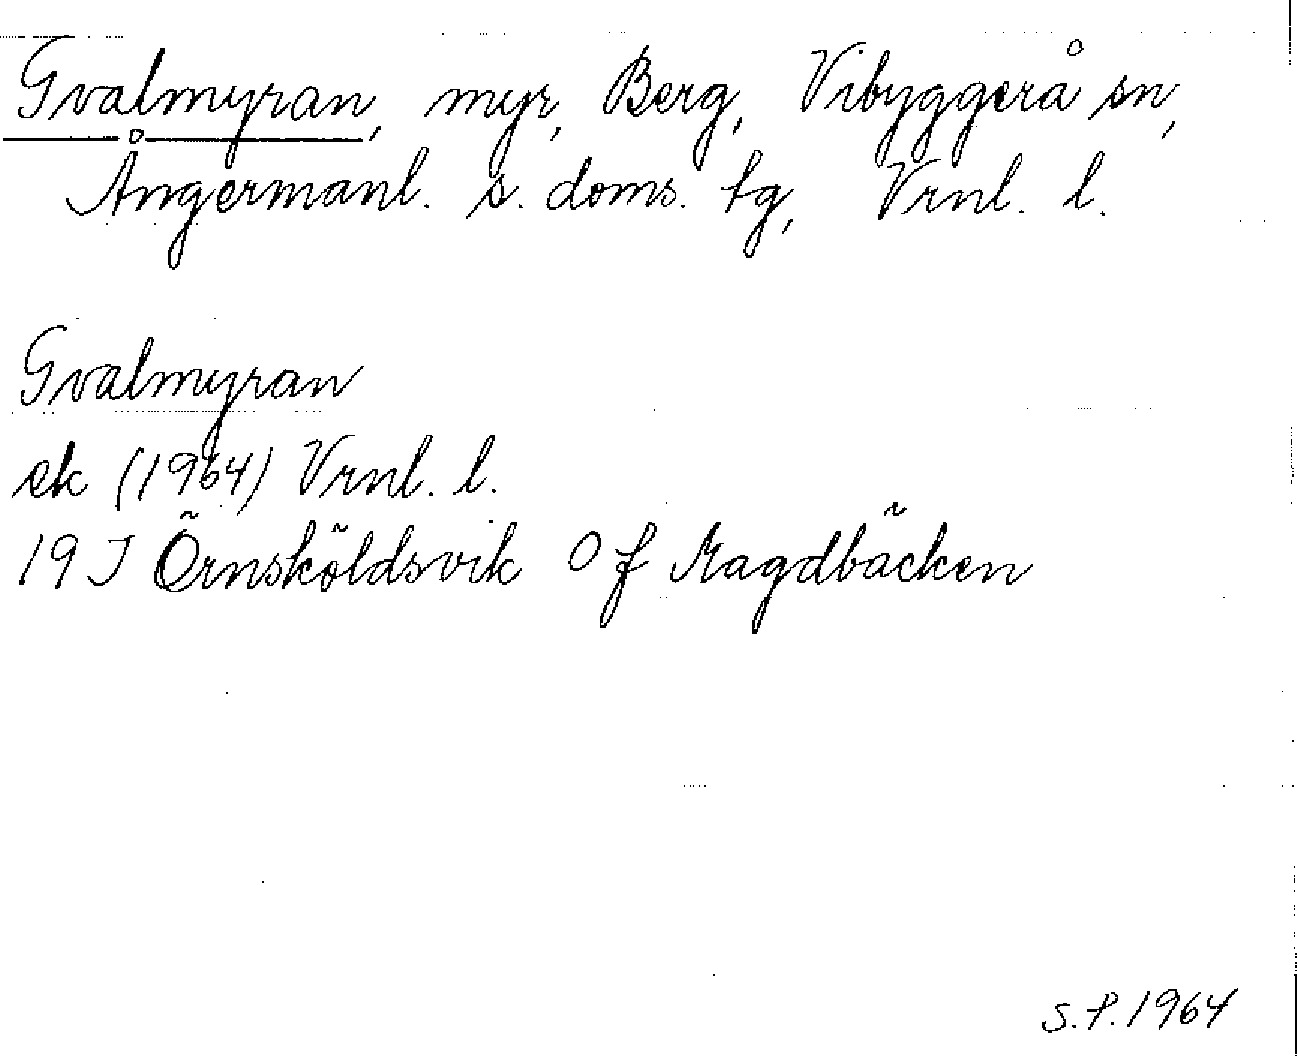 Gvalmyran, myr, Berg, Vibyggerå sn,
Ångermanl. s. doms. tg, Vrnl. l.
Gvalmyran
ek (1964) Vrnl. l.
19 J Örnsköldsvik O f Magdbäcken
S.P. 1964